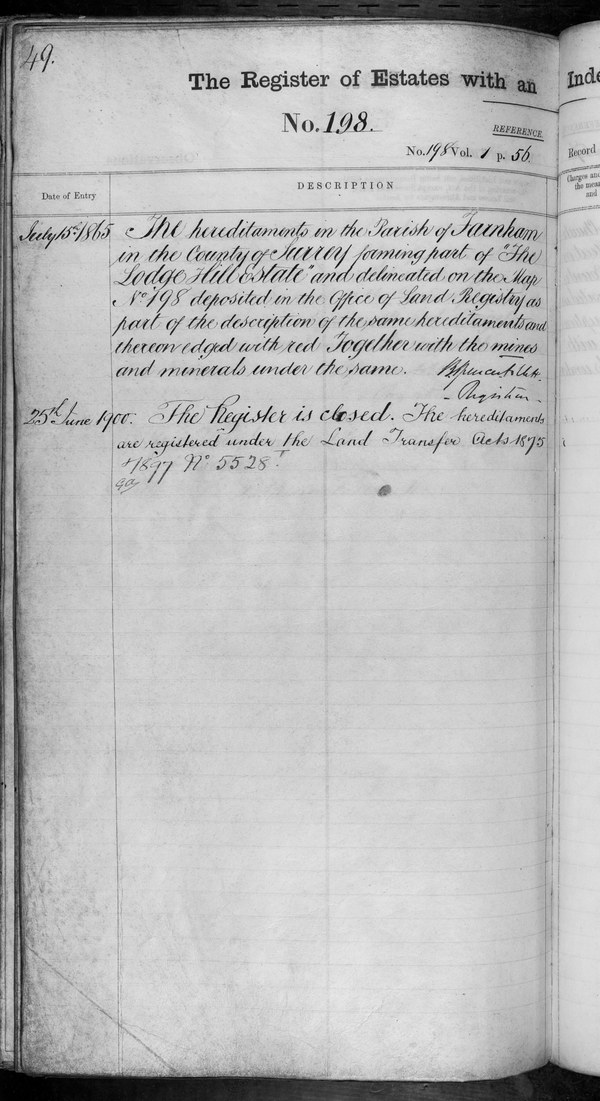 49.
The Register of Estates with an
No. 198.
REFERENCE.
No. 198 Vol. 1 p. 56
Date of Entry
DESCRIPTION
July 15th 1865 The hereditaments in the Parish of Farnham
in the County of Surrey forming part of "The
Lodge Hill Estate" and delineated on the Map
No 198 deposited in the Office of Land Registry as
part of the description of the same hereditaments and
thereon edged with red Together with the mines
and minerals under the same.
Registrar
25th June 1900. The Register is closed. The hereditaments
are registered under the Land Transfer Acts 1875
+ 1897 No 5528.
Inde
Record
Charges and
the mea
and